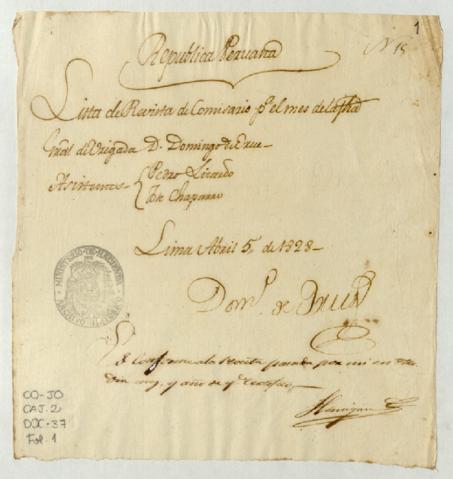 1
Nº 15
Republica Peruana
Lista de Revista de Comisario pª el mes de la fha
Gral de Brigada D. Domingo de Orue
Asistentes { Pedro Lizardo
José Chaparro
Lima Abril 5, de 1828
Domº de Orue
MINISTERIO DE HACIENDA
ARCHIVO
Es conforme a la Revista pasada por mi en dho
dia, mes, y año de q. certifico
CO-JO
CAJ. 2
DOC-37
Fol. 1